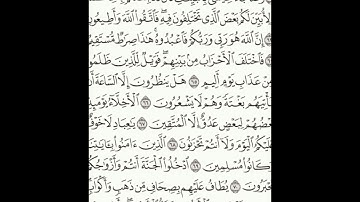 وَلِأُبَيِّنَ لَكُم بَعْضَ الَّذِي تَخْتَلِفُونَ فِيهِ فَاتَّقُوا اللَّهَ وَأَطِيعُونِ
٦٣ إِنَّ اللَّهَ هُوَ رَبِّي وَرَبُّكُمْ فَاعْبُدُوهُ هَٰذَا صِرَاطٌ مُّسْتَقِيمٌ
٦٤ فَاخْتَلَفَ الْأَحْزَابُ مِن بَيْنِهِمْ فَوَيْلٌ لِّلَّذِينَ ظَلَمُوا
مِنْ عَذَابِ يَوْمٍ أَلِيمٍ ٦٥ هَلْ يَنظُرُونَ إِلَّا السَّاعَةَ أَن
تَأْتِيَهُم بَغْتَةً وَهُمْ لَا يَشْعُرُونَ ٦٦ الْأَخِلَّاءُ يَوْمَئِذٍ
بَعْضُهُمْ لِبَعْضٍ عَدُوٌّ إِلَّا الْمُتَّقِينَ ٦٧ يَا عِبَادِ لَا خَوْفٌ
عَلَيْكُمُ الْيَوْمَ وَلَا أَنتُمْ تَحْزَنُونَ ٦٨ الَّذِينَ آمَنُوا بِآيَاتِنَا
وَكَانُوا مُسْلِمِينَ ٦٩ ادْخُلُوا الْجَنَّةَ أَنتُمْ وَأَزْوَاجُكُمْ
تُحْبَرُونَ ٧٠ يُطَافُ عَلَيْهِم بِصِحَافٍ مِّن ذَهَبٍ وَأَكْوَابٍ